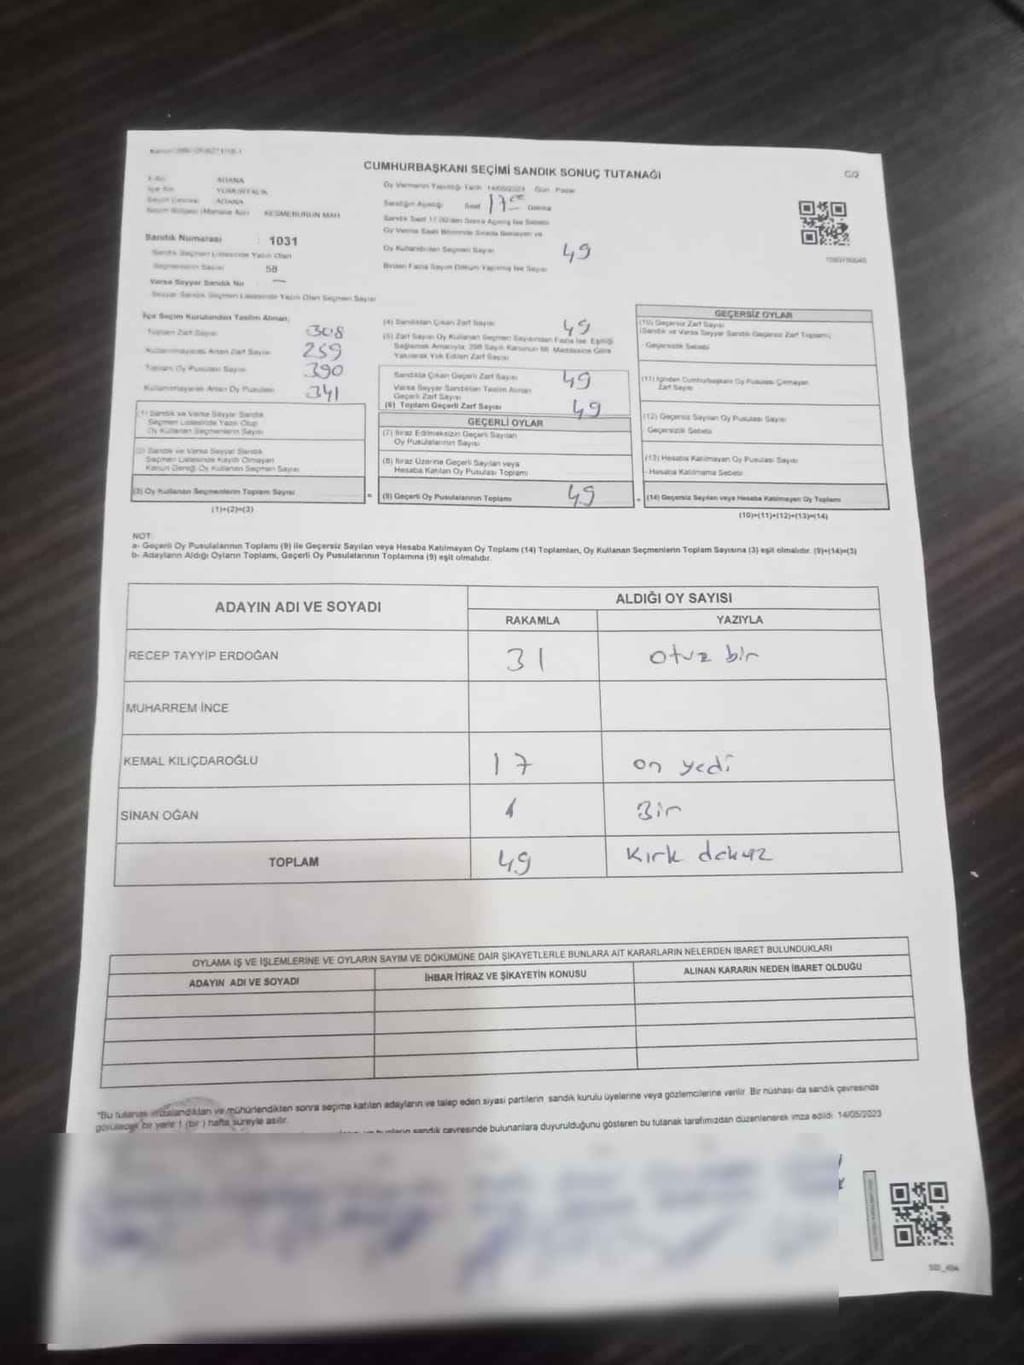 CUMHURBAŞKANI SEÇİMİ SANDIK SONUÇ TUTANAĞI
ADANA
YUMURTALIK
ADANA
KESMEBURUN MAH
Oy Vermenin Yapıldığı Tarih 14/05/2023 Gün Pazar
Sandığın Açıldığı Saat 17 00 Dakika
Sandık Numarası : 1031
Sandık Seçmen Listesinde Yazılı Olan
Seçmenlerin Sayısı 58
Varsa Seyyar Sandık No —
Seyyar Sandık Seçmen Listesinde Yazılı Olan Seçmen Sayısı
Oy Kullandırılan Seçmen Sayısı 49
Birden Fazla Sayım Döküm Yapılmış İse Sayısı
İlçe Seçim Kurulundan Teslim Alınan;
Toplam Zarf Sayısı 308
Kullanılmayarak Artan Zarf Sayısı 259
Toplam Oy Pusulası Sayısı 390
Kullanılmayarak Artan Oy Pusulası 341
(1) Sandık ve Varsa Seyyar Sandık
Seçmen Listesinde Yazılı Olup
Oy Kullanan Seçmenlerin Sayısı
(2) Sandık ve Varsa Seyyar Sandık
Seçmen Listesinde Kayıtlı Olmayan
Kanun Gereği Oy Kullanan Seçmen Sayısı
(3) Oy Kullanan Seçmenlerin Toplam Sayısı
(1)+(2)=(3)
(4) Sandıktan Çıkan Zarf Sayısı 49
(5) Zarf Sayısı Oy Kullanan Seçmen Sayısından Fazla İse, Eşitliği
Sağlamak Amacıyla, 298 Sayılı Kanunun 98. Maddesine Göre
Yakılarak Yok Edilen Zarf Sayısı
Sandıkta Çıkan Geçerli Zarf Sayısı 49
Varsa Seyyar Sandıktan Teslim Alınan
Geçerli Zarf Sayısı
(6) Toplam Geçerli Zarf Sayısı 49
GEÇERLİ OYLAR
(7) İtiraz Edilmeksizin Geçerli Sayılan
Oy Pusulalarının Sayısı
(8) İtiraz Üzerine Geçerli Sayılan veya
Hesaba Katılan Oy Pusulası Toplamı
= (9) Geçerli Oy Pusulalarının Toplamı 49
GEÇERSİZ OYLAR
(10) Geçersiz Zarf Sayısı
(Sandık ve Varsa Seyyar Sandık Geçersiz Zarf Toplamı)
- Geçersizlik Sebebi
(11) İçinden Cumhurbaşkanı Oy Pusulası Çıkmayan
Zarf Sayısı
(12) Geçersiz Sayılan Oy Pusulası Sayısı
Geçersizlik Sebebi
(13) Hesaba Katılmayan Oy Pusulası Sayısı
- Hesaba Katılmama Sebebi
(14) Geçersiz Sayılan veya Hesaba Katılmayan Oy Toplamı
(10)+(11)+(12)+(13)=(14)
NOT:
a- Geçerli Oy Pusulalarının Toplamı (9) ile Geçersiz Sayılan veya Hesaba Katılmayan Oy Toplamı (14) Toplamları, Oy Kullanan Seçmenlerin Toplam Sayısına (3) eşit olmalıdır. (9)+(14)=(3)
b- Adayların Aldığı Oyların Toplamı, Geçerli Oy Pusulalarının Toplamına (9) eşit olmalıdır.
ADAYIN ADI VE SOYADI
ALDIĞI OY SAYISI
RAKAMLA YAZIYLA
RECEP TAYYİP ERDOĞAN 31 otuz bir
MUHARREM İNCE
KEMAL KILIÇDAROĞLU 17 on yedi
SİNAN OĞAN 1 Bir
TOPLAM 49 Kırk dokuz
OYLAMA İŞ VE İŞLEMLERİNE VE OYLARIN SAYIM VE DÖKÜMÜNE DAİR ŞİKAYETLERLE BUNLARA AİT KARARLARIN NELERDEN İBARET BULUNDUKLARI
ADAYIN ADI VE SOYADI İHBAR İTİRAZ VE ŞİKAYETİN KONUSU ALINAN KARARIN NEDEN İBARET OLDUĞU
"Bu tutanak imzalandıktan ve mühürlendikten sonra seçime katılan adayların ve talep eden siyasi partilerin sandık kurulu üyelerine veya gözlemcilerine verilir. Bir nüshası da sandık çevresinde
görülecek bir yerle 1 (bir) hafta süreyle asılır.
sandık çevresinde bulunanlara duyurulduğunu gösteren bu tutanak tarafımızdan düzenlenerek imza edildi. 14/05/2023